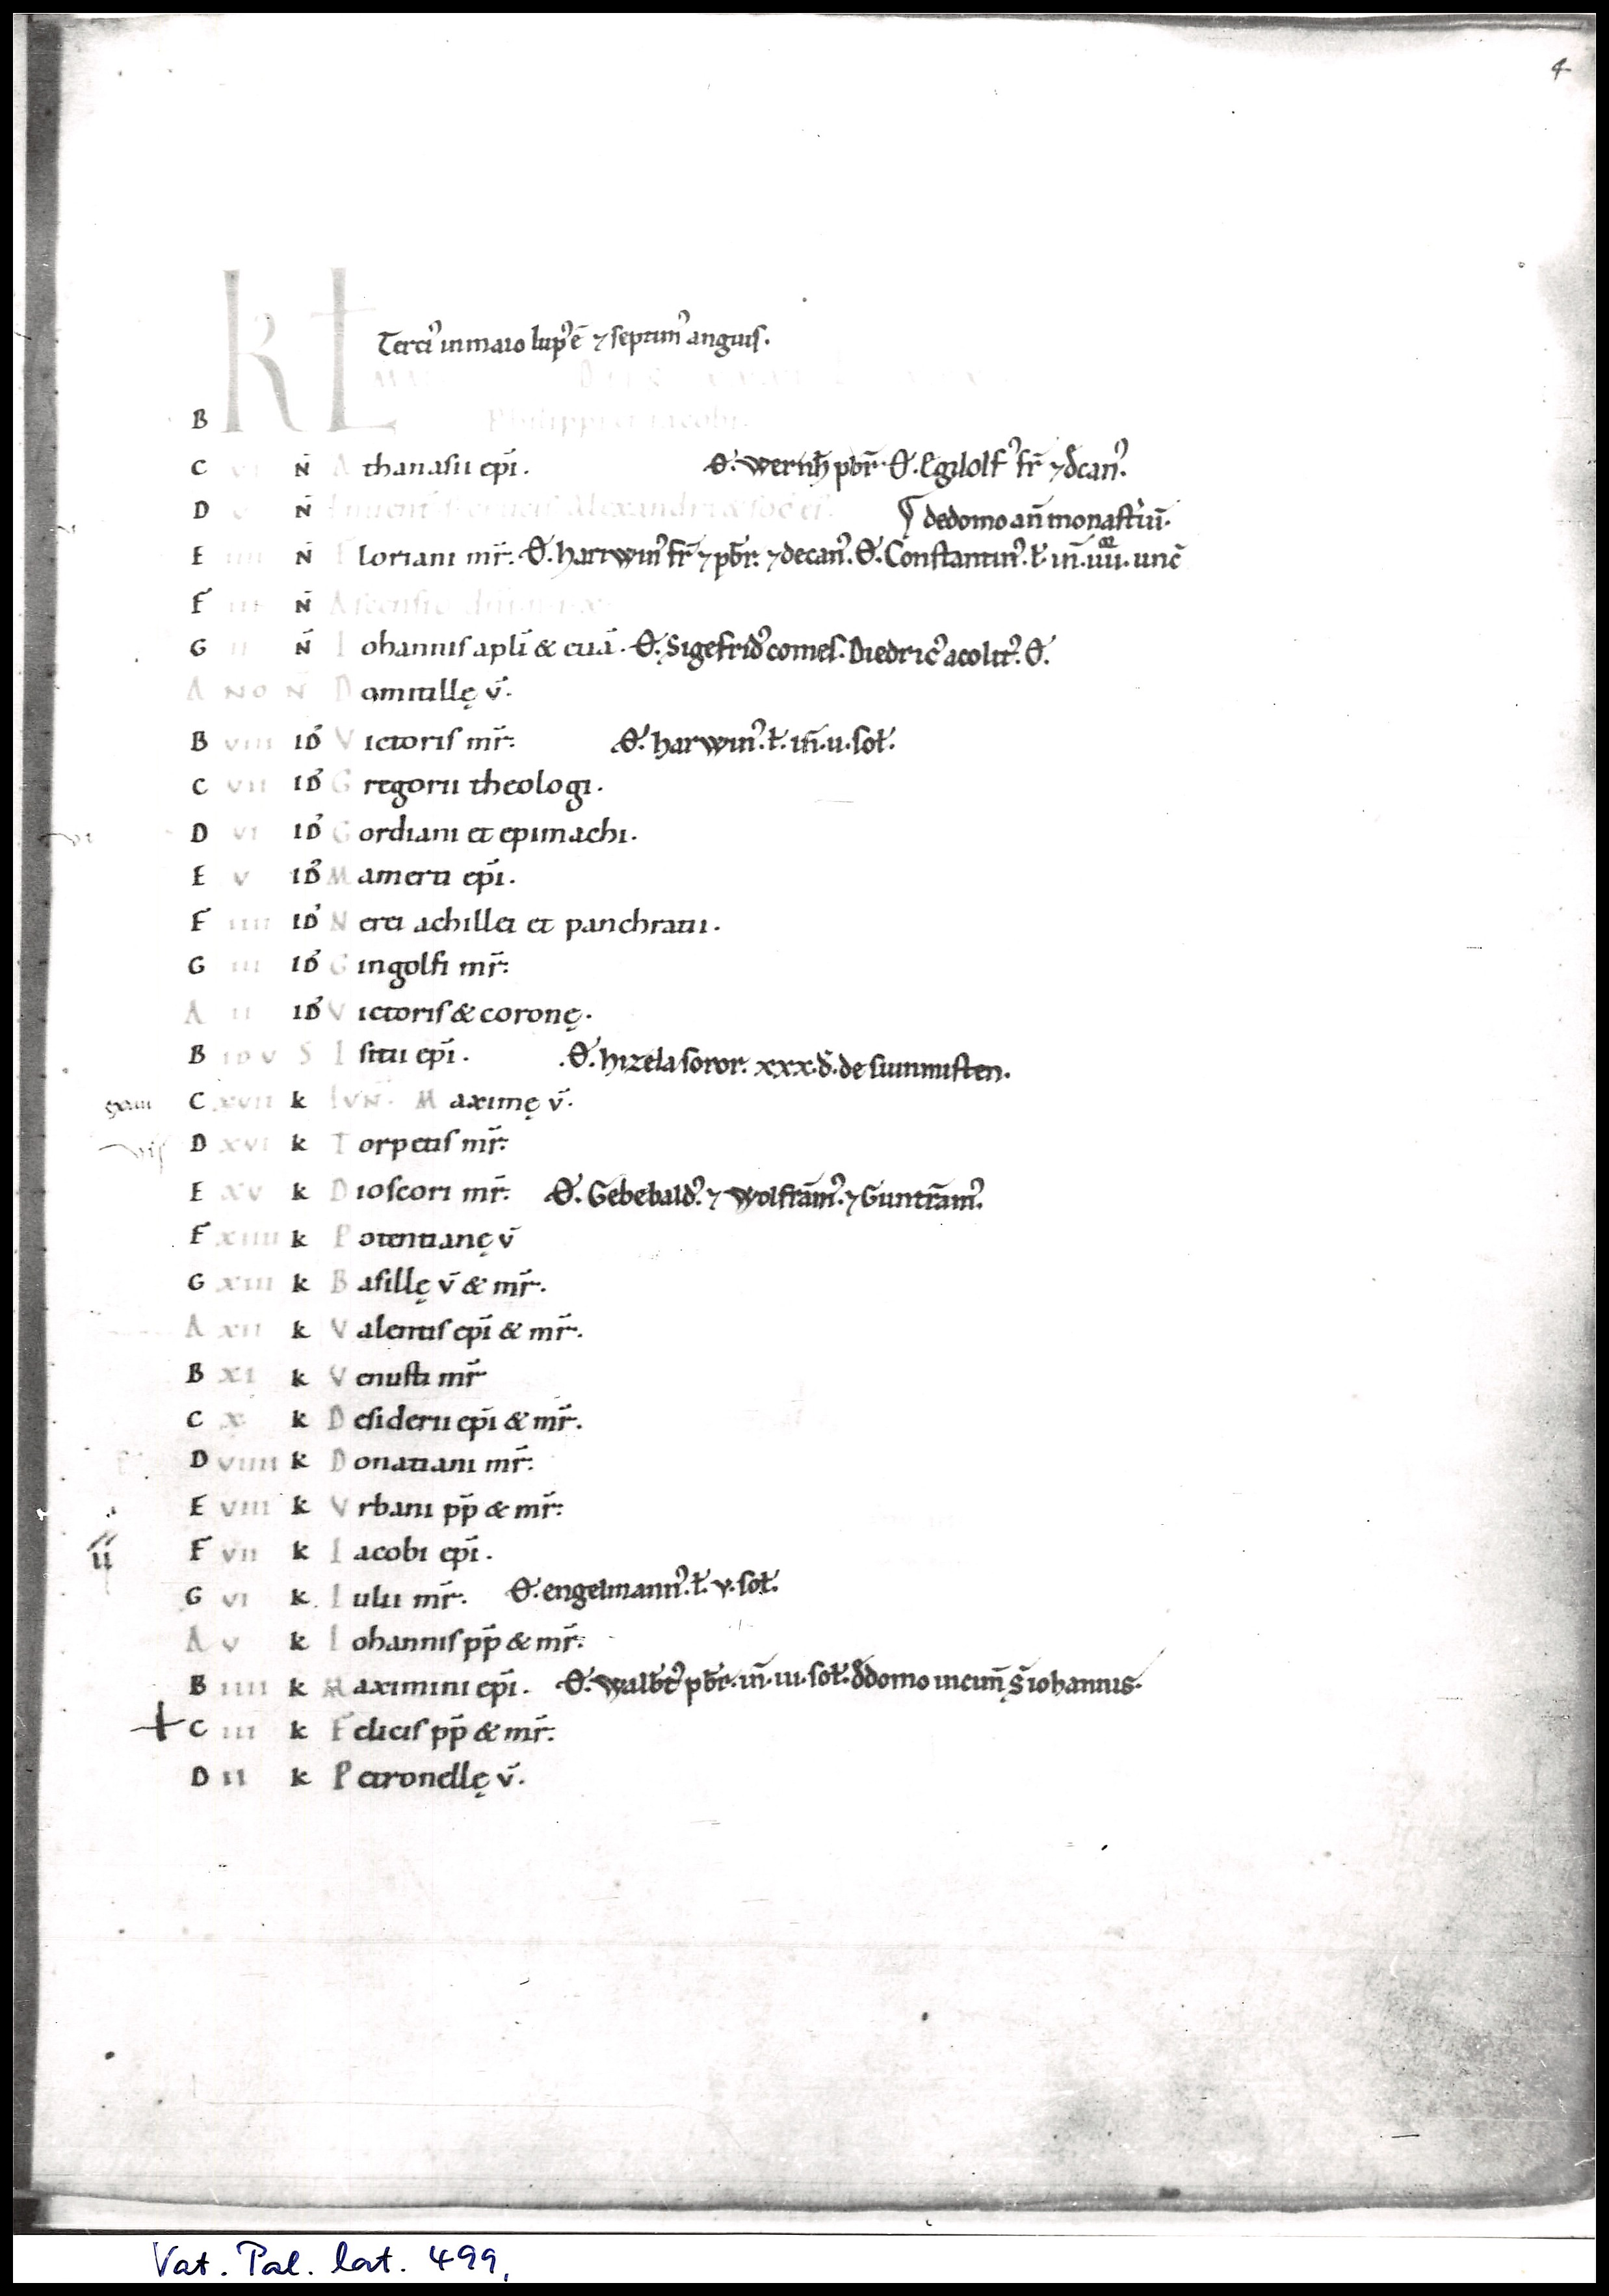 4
KL
Terciꝰ in maio lupꝰ ē ⁊ septimꝰ anguis.
B Philippi et iacobi.
C vi N̄ Athanasii ep̄i. O͞. wernh̄ pbr̄. O͞. Egilolfꝰ fr̄ ⁊ dcanꝰ.
D v N̄ Inuent̄ s̄ crucis Alexandri & soc̄ ei. de domo an̄ monast̄iū.
E iiii N̄ Floriani mr̄. O͞. hartwinꝰ fr̄ ⁊ pbr̄. ⁊ decanꝰ. O͞. Constantinꝰ. t̄. in̄. unc̄
F iii N̄ Ascensio dn̄i
G ii N̄ Iohannis apl̄i & euā. O͞. Sigefridꝰ comes. Diedricꝰ acolitꝰ. O͞.
A NO N̄ Domitillę v̄.
B viii ID Victoris mr̄. O͞. harwinꝰ. t̄. in̄. u. sol̄.
C vii ID Gregorii theologi.
D vi ID Gordiani et epimachi.
E v ID Mamerti ep̄i.
F iiii ID Nerei achillei et panchratii.
G iii ID Gingolfi mr̄.
A ii ID Victoris & coronę.
B IDVS Isitii ep̄i. O͞. hizela soror. xxx. d̄. de sunnisten.
C xvii k IVN. Maximę v̄.
vii D xvi k Torpetis mr̄.
E xv k Dioscori mr̄. O͞. Gebebaldꝰ. ⁊ wolframꝰ. ⁊ Guntramꝰ.
F xiiii k Potentianę v̄
G xiii k Basillę v̄ & mr̄.
A xii k Valentis ep̄i & mr̄.
B xi k Venusti mr̄
C x k Desiderii ep̄i & mr̄.
D viiii k Donatiani mr̄.
E viii k Vrbani pp̄ & mr̄.
ii F vii k Iacobi ep̄i.
G vi k. Iulii mr̄. O͞. engelmannꝰ. t̄. v. sol̄.
A v k Iohannis pp̄ & mr̄.
B iiii k Maximini ep̄i. O͞. walbtꝰ pbr̄. in̄. iii. sol̄. d̄ domo in cim̄ S̄ iohannis.
+ C iii k Felicis pp̄ & mr̄.
D ii k Petronellę v̄.
Vat. Pal. lat. 499,